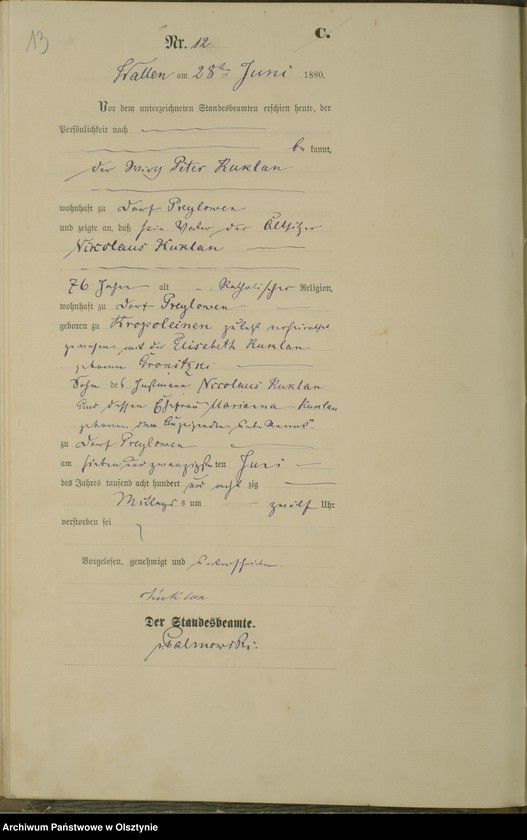 13
C.
Nr. 12
Wallen am 28ten Juni 1880.
Vor dem unterzeichneten Standesbeamten erschien heute, der
Persönlichkeit nach
be kannt,
der Wirth Peter Kuklan
wohnhaft zu Dorf Preylowen
und zeigte an, daß sein Vater, der Altsitzer
Nikolaus Kuklan
76 Jahre alt Katholischer Religion,
wohnhaft zu Dorf Preylowen
geboren zu Kropoleinen zuletzt verheirathet
gewesen mit der Elisabeth Kuklan
geborene Gronitzki
Sohn des Nicolaus Kuklan
und dessen Ehefrau Marianna Kuklan
geborene dem Anzeigenden unbekannt
zu Dorf Preylowen
am sieben und zwanzigsten Juni
des Jahres tausend acht hundert und acht zig
Mittags s um zwölf Uhr
verstorben sei
Vorgelesen, genehmigt und unterschrieben
Kuklan
Der Standesbeamte.
Archiwum Państwowe w Olsztynie